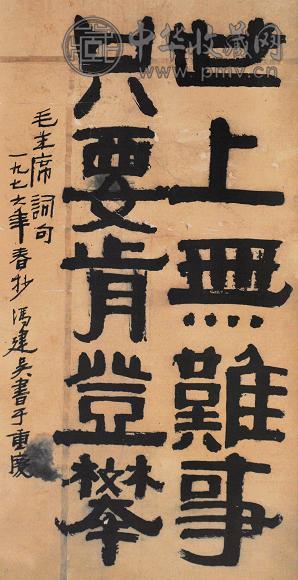 世上無難事
只要肯登攀
毛主席詞句
一九七六年春抄馮建吳書于重慶
中华收藏网
www.pmv.cn